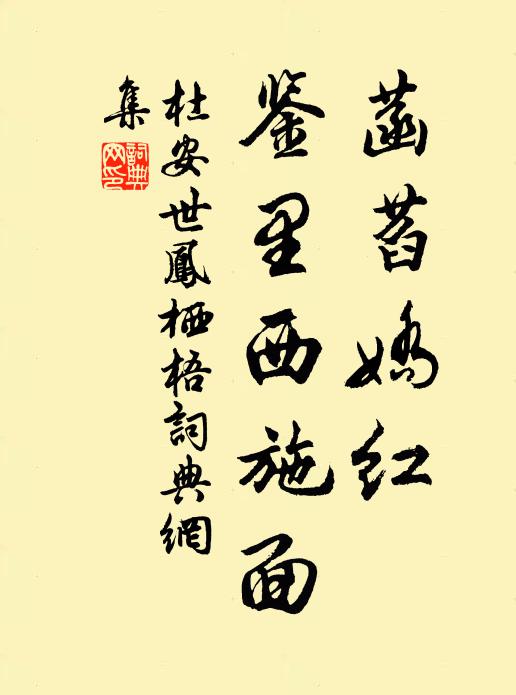 菡萏嬌红
鉴里西施面
杜安世鳳栖梧詞典網
集
詞典
网印